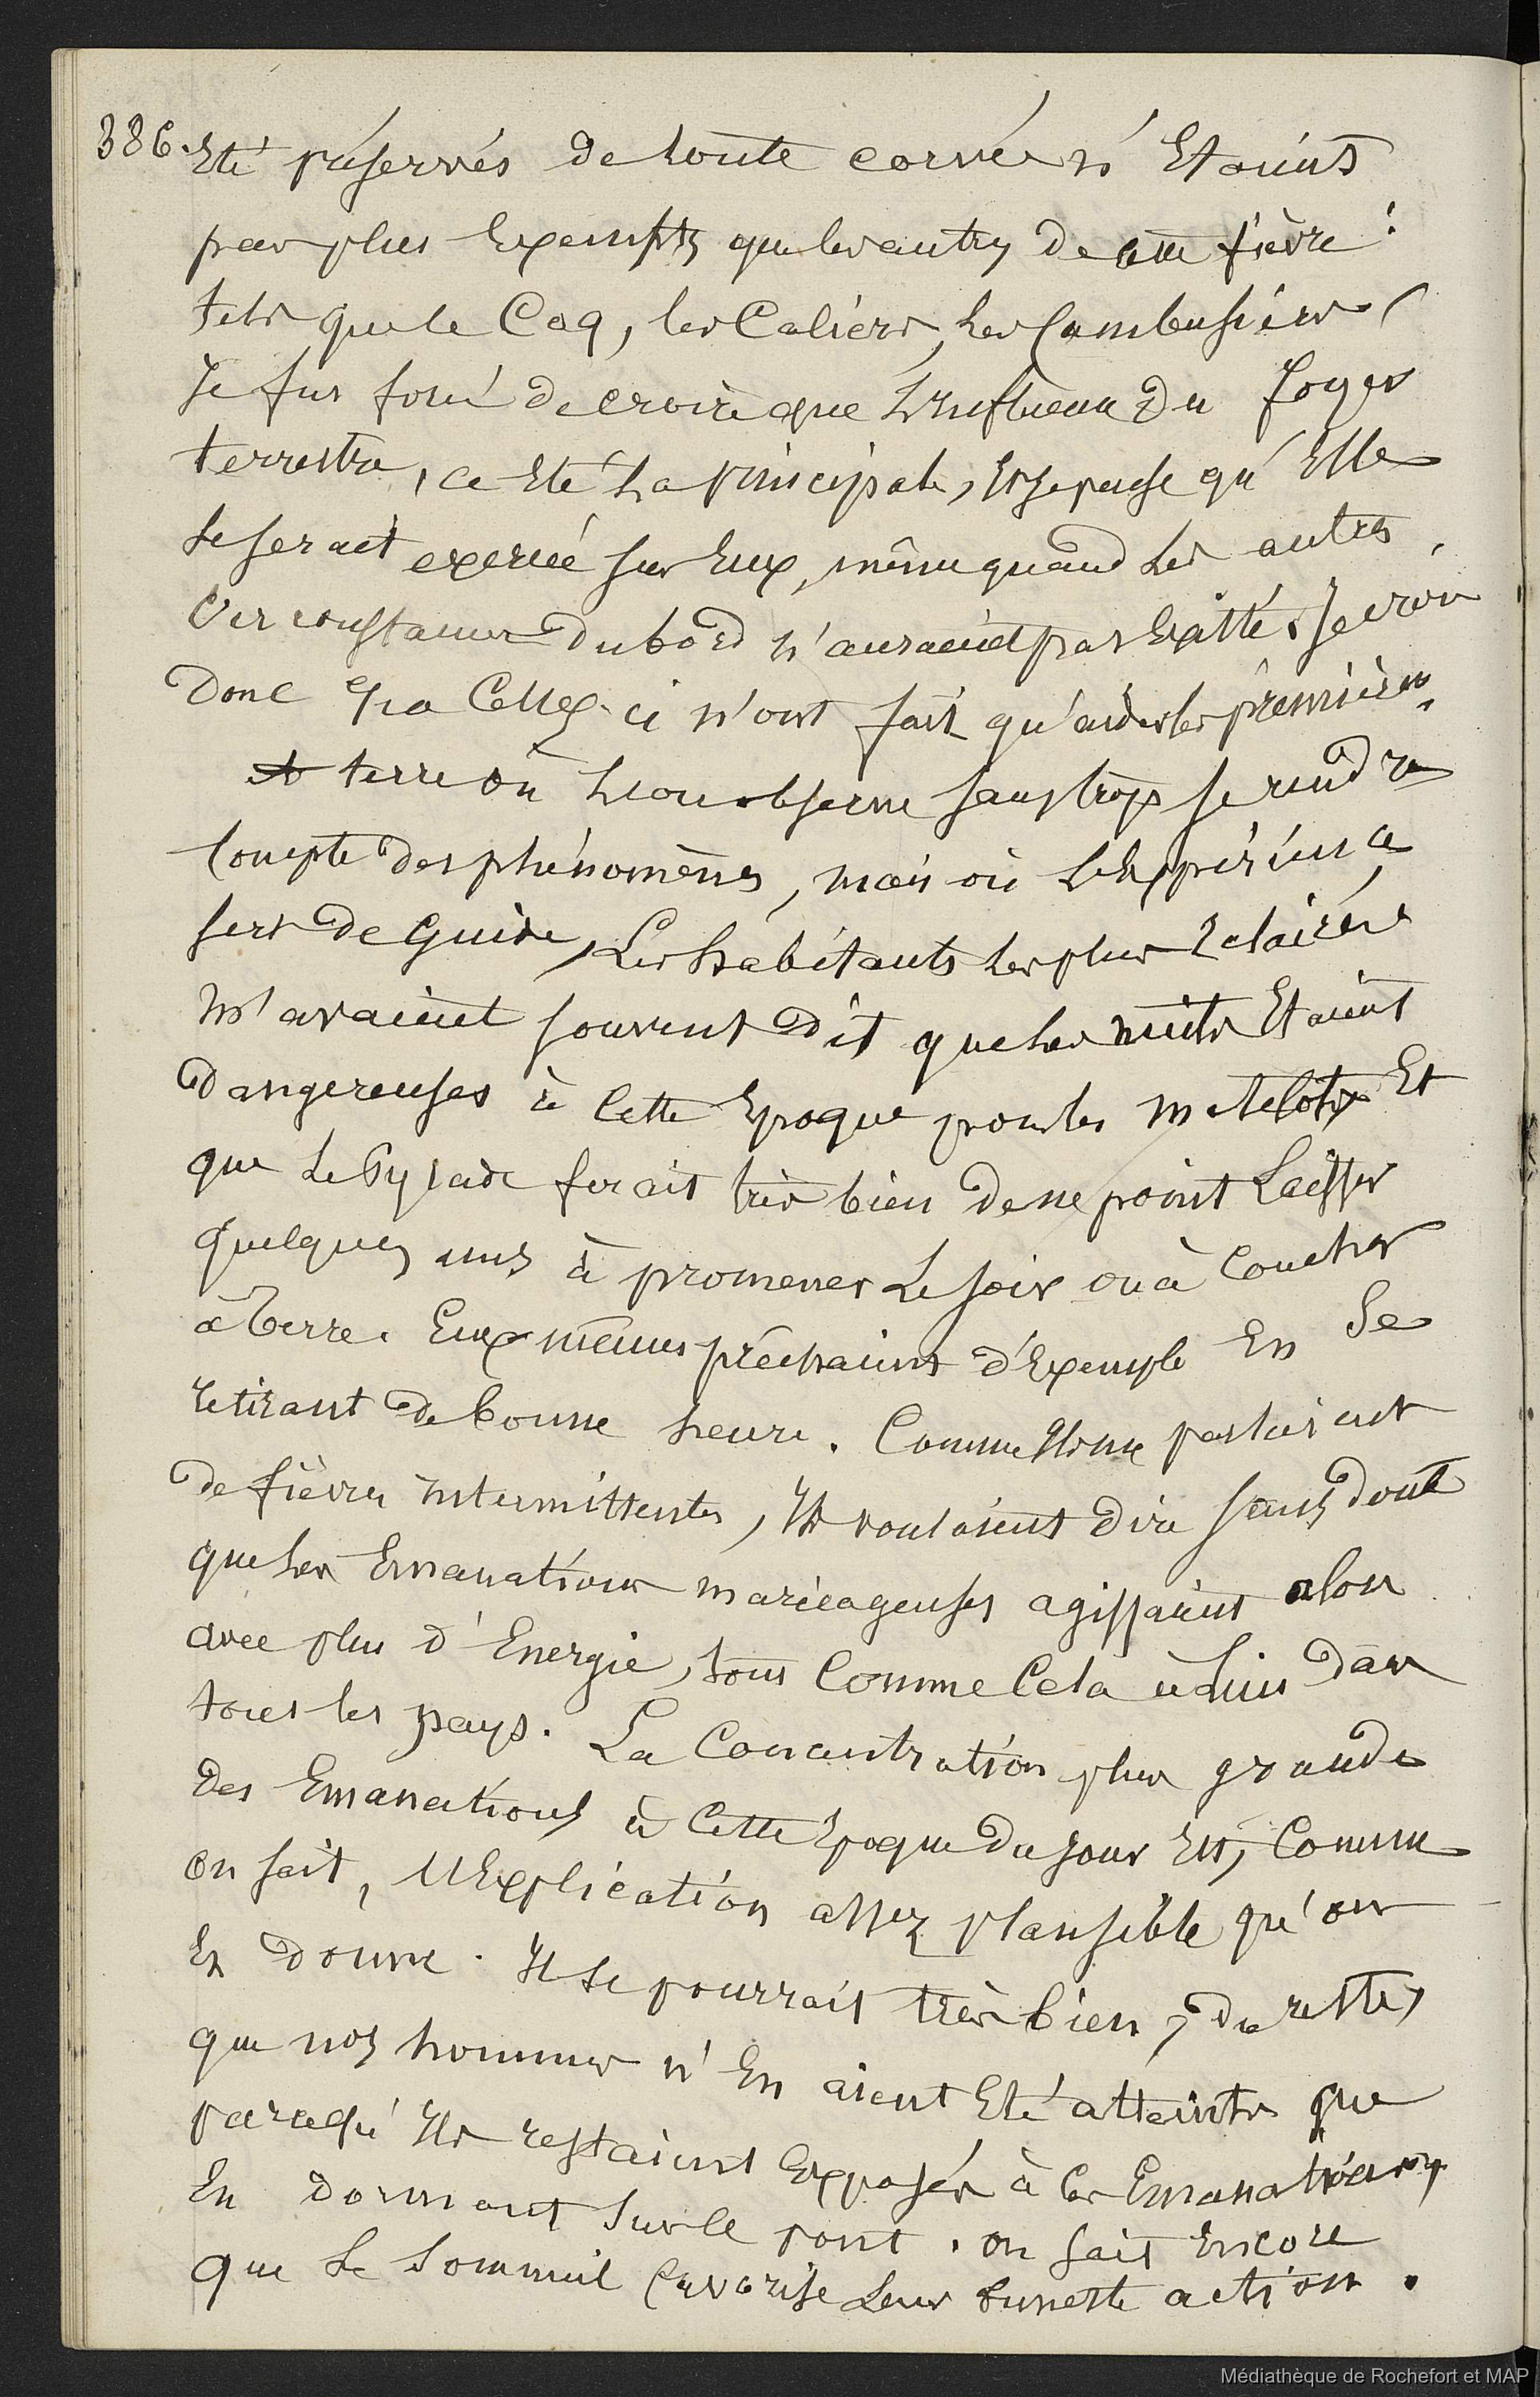 386. Eté préservés de toute corvée n'Etaient
pas plus Exempts que les autres de cette fièvre :
tels que le Coq, les Caliers, les Cambusiers,
Je fus forcé de croire que L'Influence du foyer
terrestre, a Eté La principale, Et Je pense qu'Elle
se serait exercée sur Eux, même quand Les autres
Circonstances du bord n'auraient pas Existé. Je crois
donc que Celles-ci n'ont fait qu'aider les premières,
à terre où L'on observe sans trop se rendre
Compte des phénomènes, mais où L'Expérience
sert de Guide, Les habitants les plus Eclairés
m'avaient souvent dit que les nuits Etaient
dangereuses à Cette Epoque pour les matelots Et
que Le Pylade ferait très bien de ne point Laisser
quelques uns à promener Le soir ou à Coucher
à Terre. Eux mêmes prêchaient d'Exemple En Se
retirant de bonne heure. Comme Ils me parlaient
de fièvres Intermittentes, Ils voulaient dire sans doute
que les Emanations marécageuses agissaient alors
avec plus d'Energie, tout Comme Cela a lieu dans
tous les pays. La Concentration plus grande
des Emanations à Cette Epoque du Jour Est, Comme
on sait, L'Explication assez plausible qu'on
En donne. Il se pourrait très bien, du reste,
que nos hommes n'En aient Eté atteints que
parcequ'Ils restaient Exposés à Ces Emanations
En dormant Sur le pont. on sait Encore
que Le Sommeil favorise Leur funeste action.
Médiathèque de Rochefort et MAP